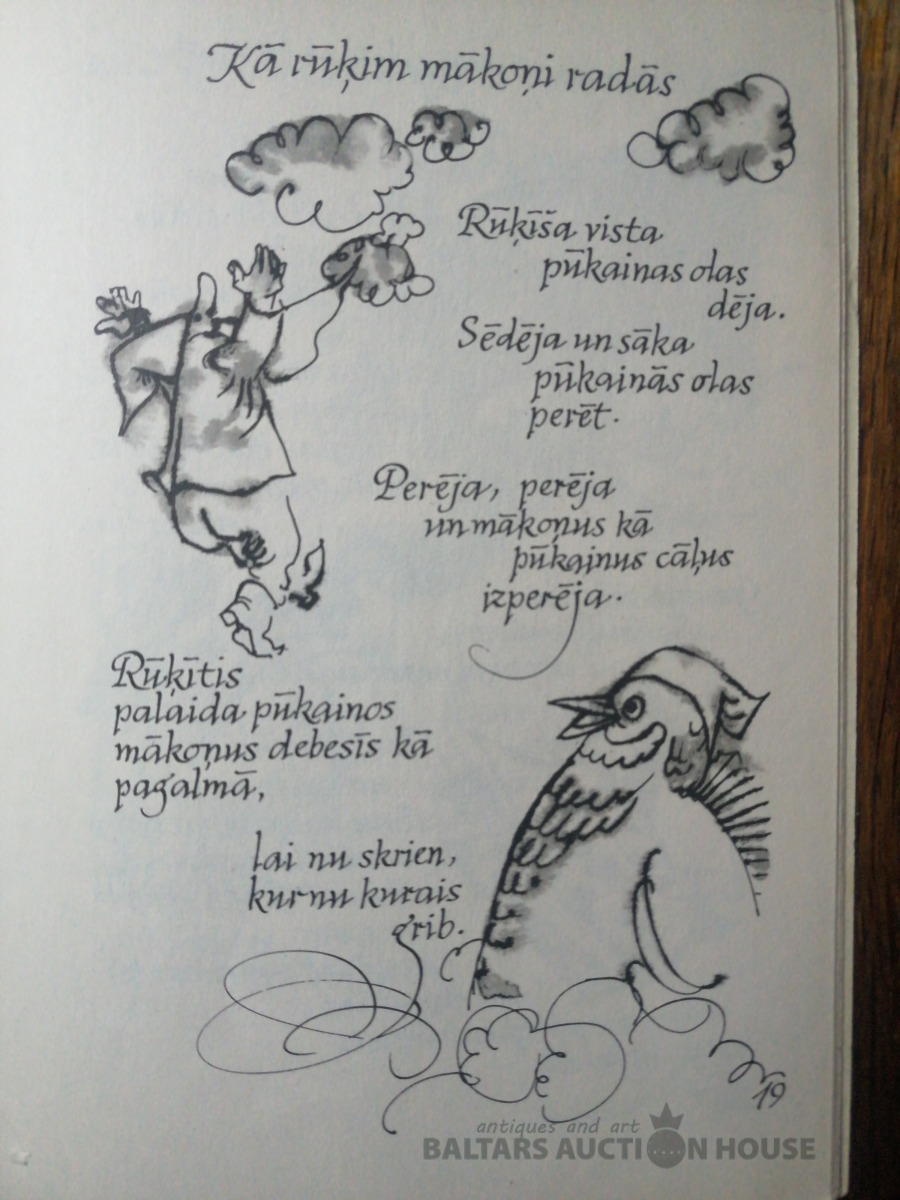 Kā rūķim mākoņi radās
Rūķīša vista
pūkainas olas
dēja.
Sēdēja un sāka
pūkainās olas
perēt.
Perēja, perēja
un mākoņus kā
pūkainus cāļus
izperēja.
Rūķītis
palaida pūkainos
mākoņus debesīs kā
pagalmā,
lai nu skrien,
kur nu kurais
grib.
19
antiques and art
BALTARS AUCTION HOUSE